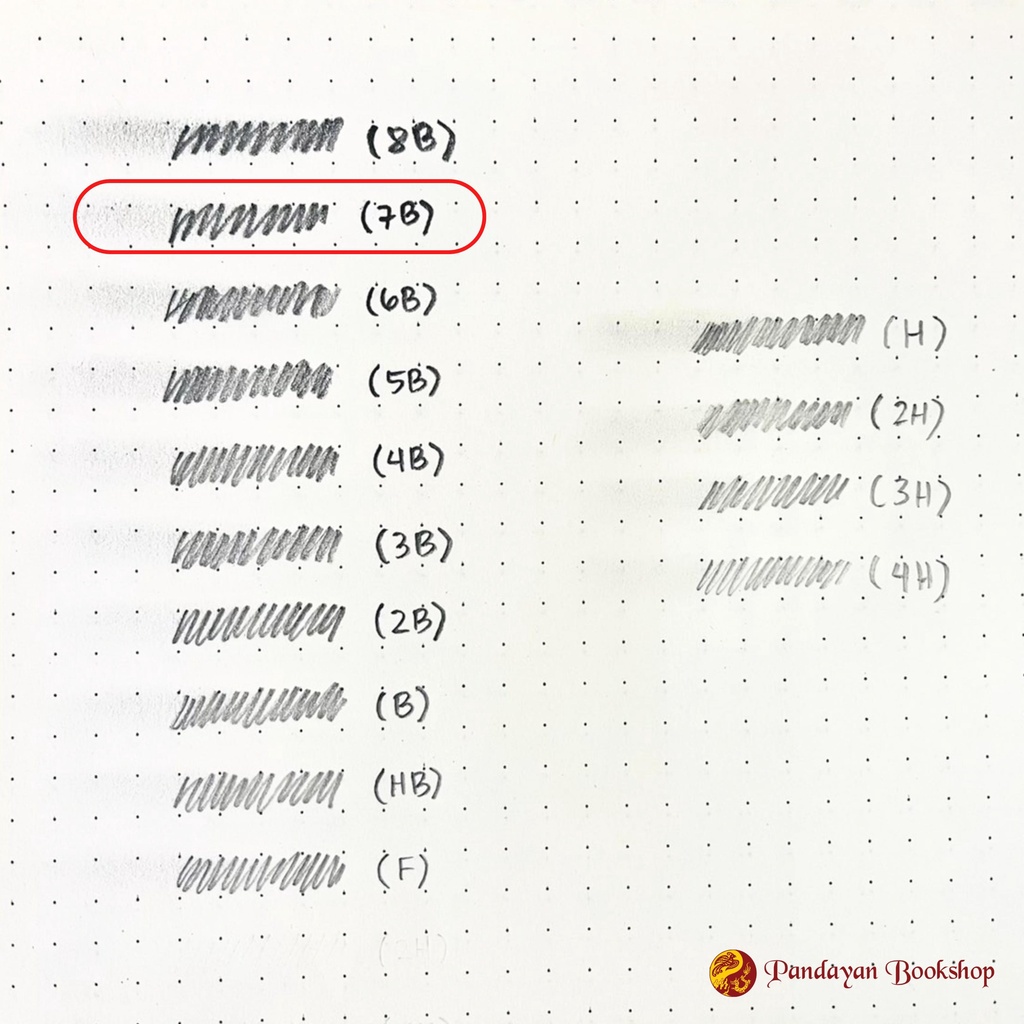 (8B)
(7B)
(6B)
(5B)
(4B)
(3B)
(2B)
(B)
(HB)
(F)
(2H)
(H)
(2H)
(3H)
(4H)
Pandayan Bookshop